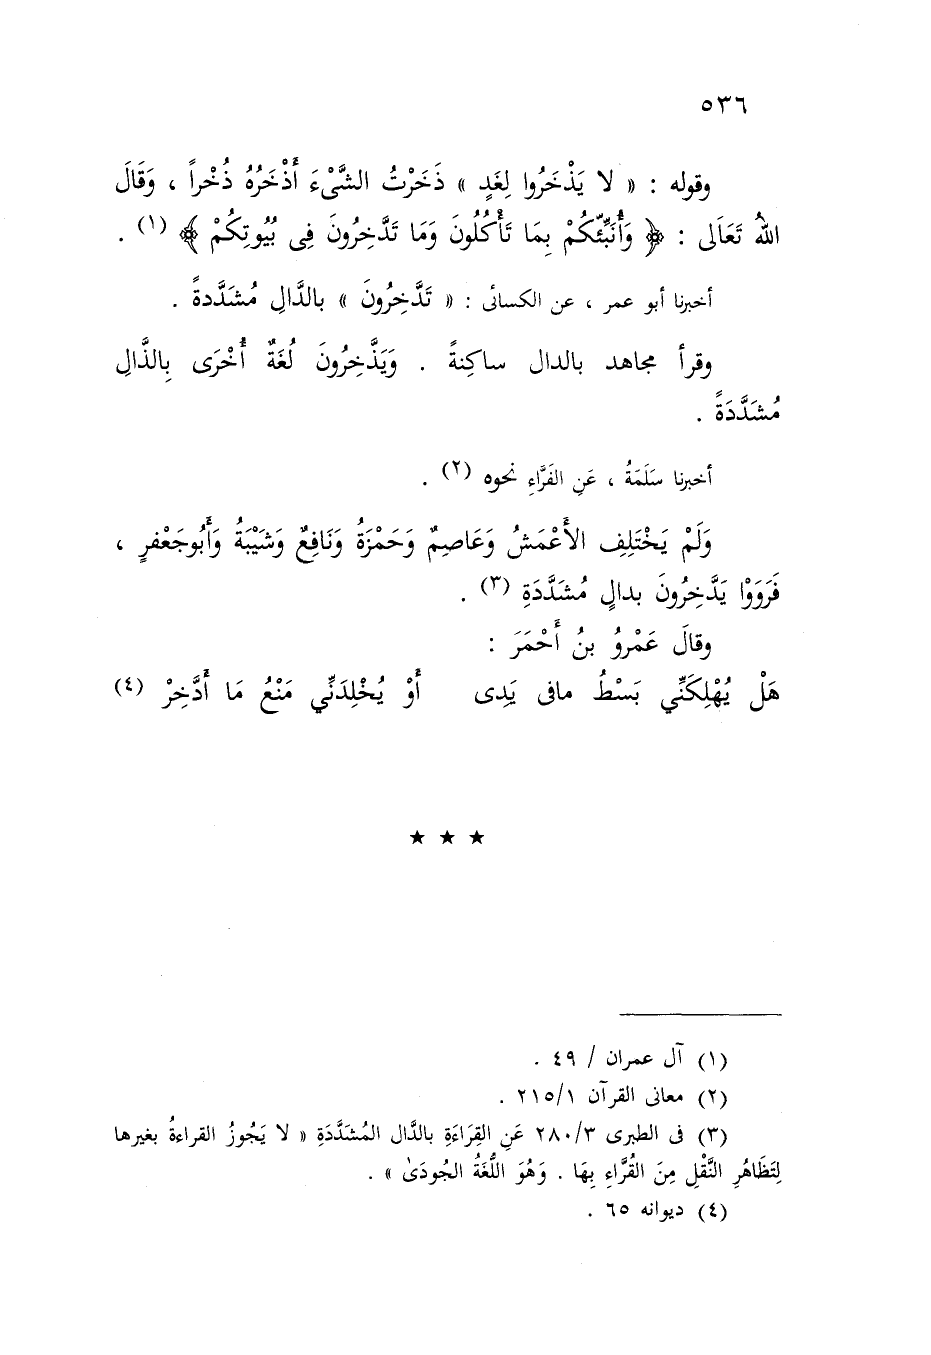 ٥٣٦
وقوله : « لا يَذْخَرُوا لِغَدٍ » ذَخَرْتُ الشَّىْءَ أَذْخَرُهُ ذُخْراً ، وَقَالَ
اللهُ تَعَالَى : ﴿ وَأُنَبِّئُكُمْ بِمَا تَأْكُلُونَ وَمَا تَدَّخِرُونَ فِى بُيُوتِكُمْ ﴾ (١) .
أخبرنا أبو عمر ، عن الكسائى : « تَدَّخِرُونَ » بالدَّالِ مُشَدَّدةً .
وقرأ مجاهد بالدال ساكِنةً . وَيَذَّخِرُونَ لُغَةٌ أُخْرَى بِالذَّالِ
مُشَدَّدَةً .
أخبرنا سَلَمَةُ ، عَنِ الفَرَّاءِ نحوه (٢) .
وَلَمْ يَخْتَلِفِ الأَعْمَشُ وَعَاصِمٌ وَحَمْزَةُ وَنَافِعٌ وَشَيْبَةُ وَأَبُوجَعْفرٍ ،
فَرَوَوْا يَدَّخِرُونَ بدالٍ مُشَدَّدَةِ (٣) .
وقالَ عَمْرُو بنُ أَحْمَرَ :
هَلْ يُهْلِكَنِّي بَسْطُ مافى يَدِى أَوْ يُخْلِدَنِّي مَنْعُ مَا أَدَّخِرْ (٤)
★ ★ ★
(١) آل عمران / ٤٩ .
(٢) معانى القرآن ٢١٥/١ .
(٣) فى الطبرى ٢٨٠/٣ عَنِ القِرَاءَةِ بالدَّال المُشَدَّدَةِ « لا يَجُوزُ القراءةُ بغيرها
لِتَظَاهُرِ النَّقْلِ مِنَ القُرَّاءِ بِهَا . وَهُوَ اللُّغَةُ الجُودَىٰ » .
(٤) ديوانه ٦٥ .